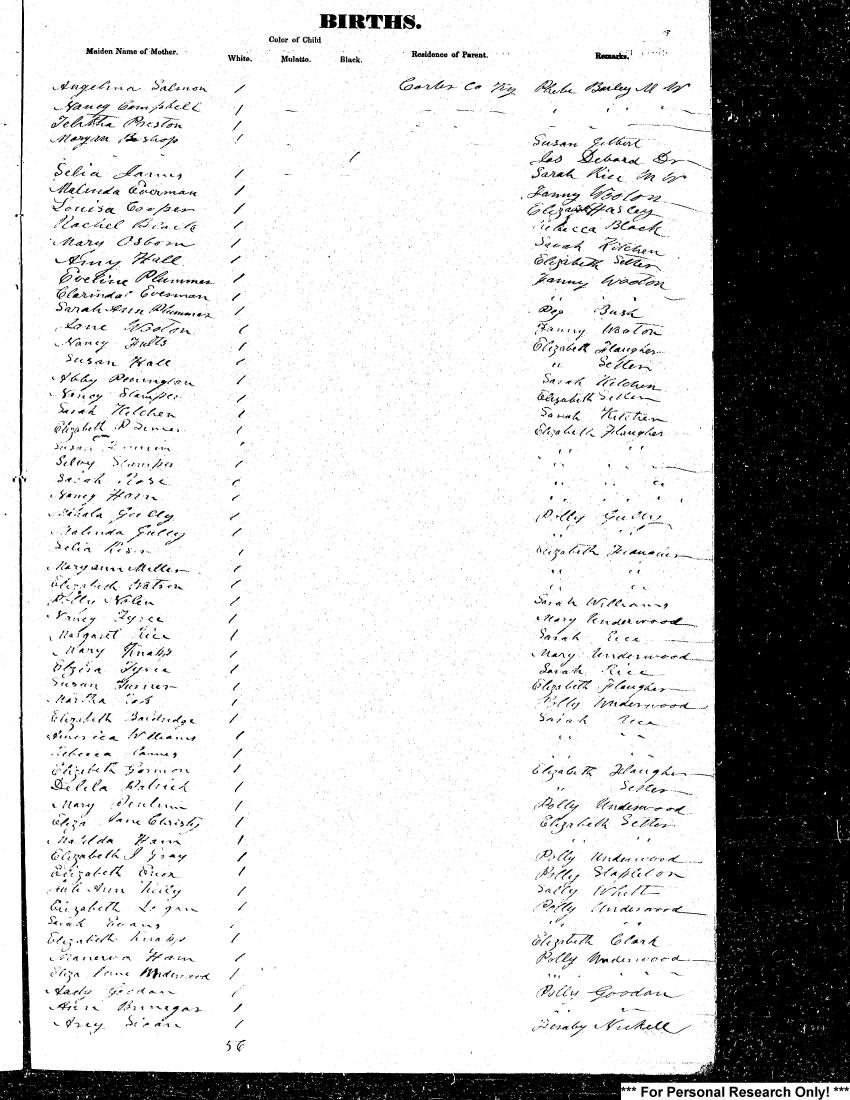 BIRTHS.
Color of Child
Maiden Name of Mother. White. Mulatto. Black. Residence of Parent. Remarks.
Angelina Salmon / Carter Co Ky Phebe Burley M W
Nancy Campbell / — " " "
Telitha Preston /
Mary M Bishop / Susan Gilbert
- - / Jas Debard Dr
Selia James / — Sarah Rice M W
Malinda Everman / Fanny Wooton
Louisa Cooper / Elizabeth Hasley
Rachel Black / Rebecca Black
Mary Osborn / Sarah Kitchen
Amy Hall / Elizabeth Setters
Eveline Plummer / Fanny Wooton
Clarinda Everman / " "
Sarah Ann Plummer / Peg Bush
Jane Wooton / Fanny Wooton
Nancy Fults / Elizabeth Flaugher
Susan Hall / " Setters
Abby Penington / Sarah Kitchen
Nancy Stamper / Elizabeth Setters
Sarah Kitchen / Sarah Kitchen
Elizabeth / Elizabeth Flaugher
Susan / " "
Selvy Stamper / " "
Sarah Rose / " "
Nancy Horn / " "
Mahala Gully / Polly Gully
Malinda Gully / " "
Selia / Elizabeth
Maryann Miller / " "
Elizabeth Watson / " "
Polly Nolen / Sarah Williams
Nancy Tyree / Mary Underwood
Margaret Rice / Sarah Rice
Mary Knapps / Mary Underwood
Elzira Tyree / Sarah Rice
Susan Turner / Elizabeth Flaugher
Martha / Polly Underwood
Elizabeth Baldridge / Sarah Rice
America Williams / " "
Rebecca / " "
Elizabeth Gormon / Elizabeth Flaugher
Delila Patrick / " Setters
Mary / Polly Underwood
Eliza Jane Christy / Elizabeth Setters
Matilda Ham / " "
Elizabeth J Gray / Polly Underwood
Elizabeth / Polly Stapleton
Ann / Sally Whitt
Elizabeth Logan / Polly Underwood
Sarah Evans / " "
Elizabeth Knapps / Elizabeth Clark
Manerva Ham / Polly Underwood
Eliza Jane Underwood / " "
Goodan / Polly Goodan
Ann Brunegar / " "
Arey Sloan / Nickell
56
*** For Personal Research Only! ***